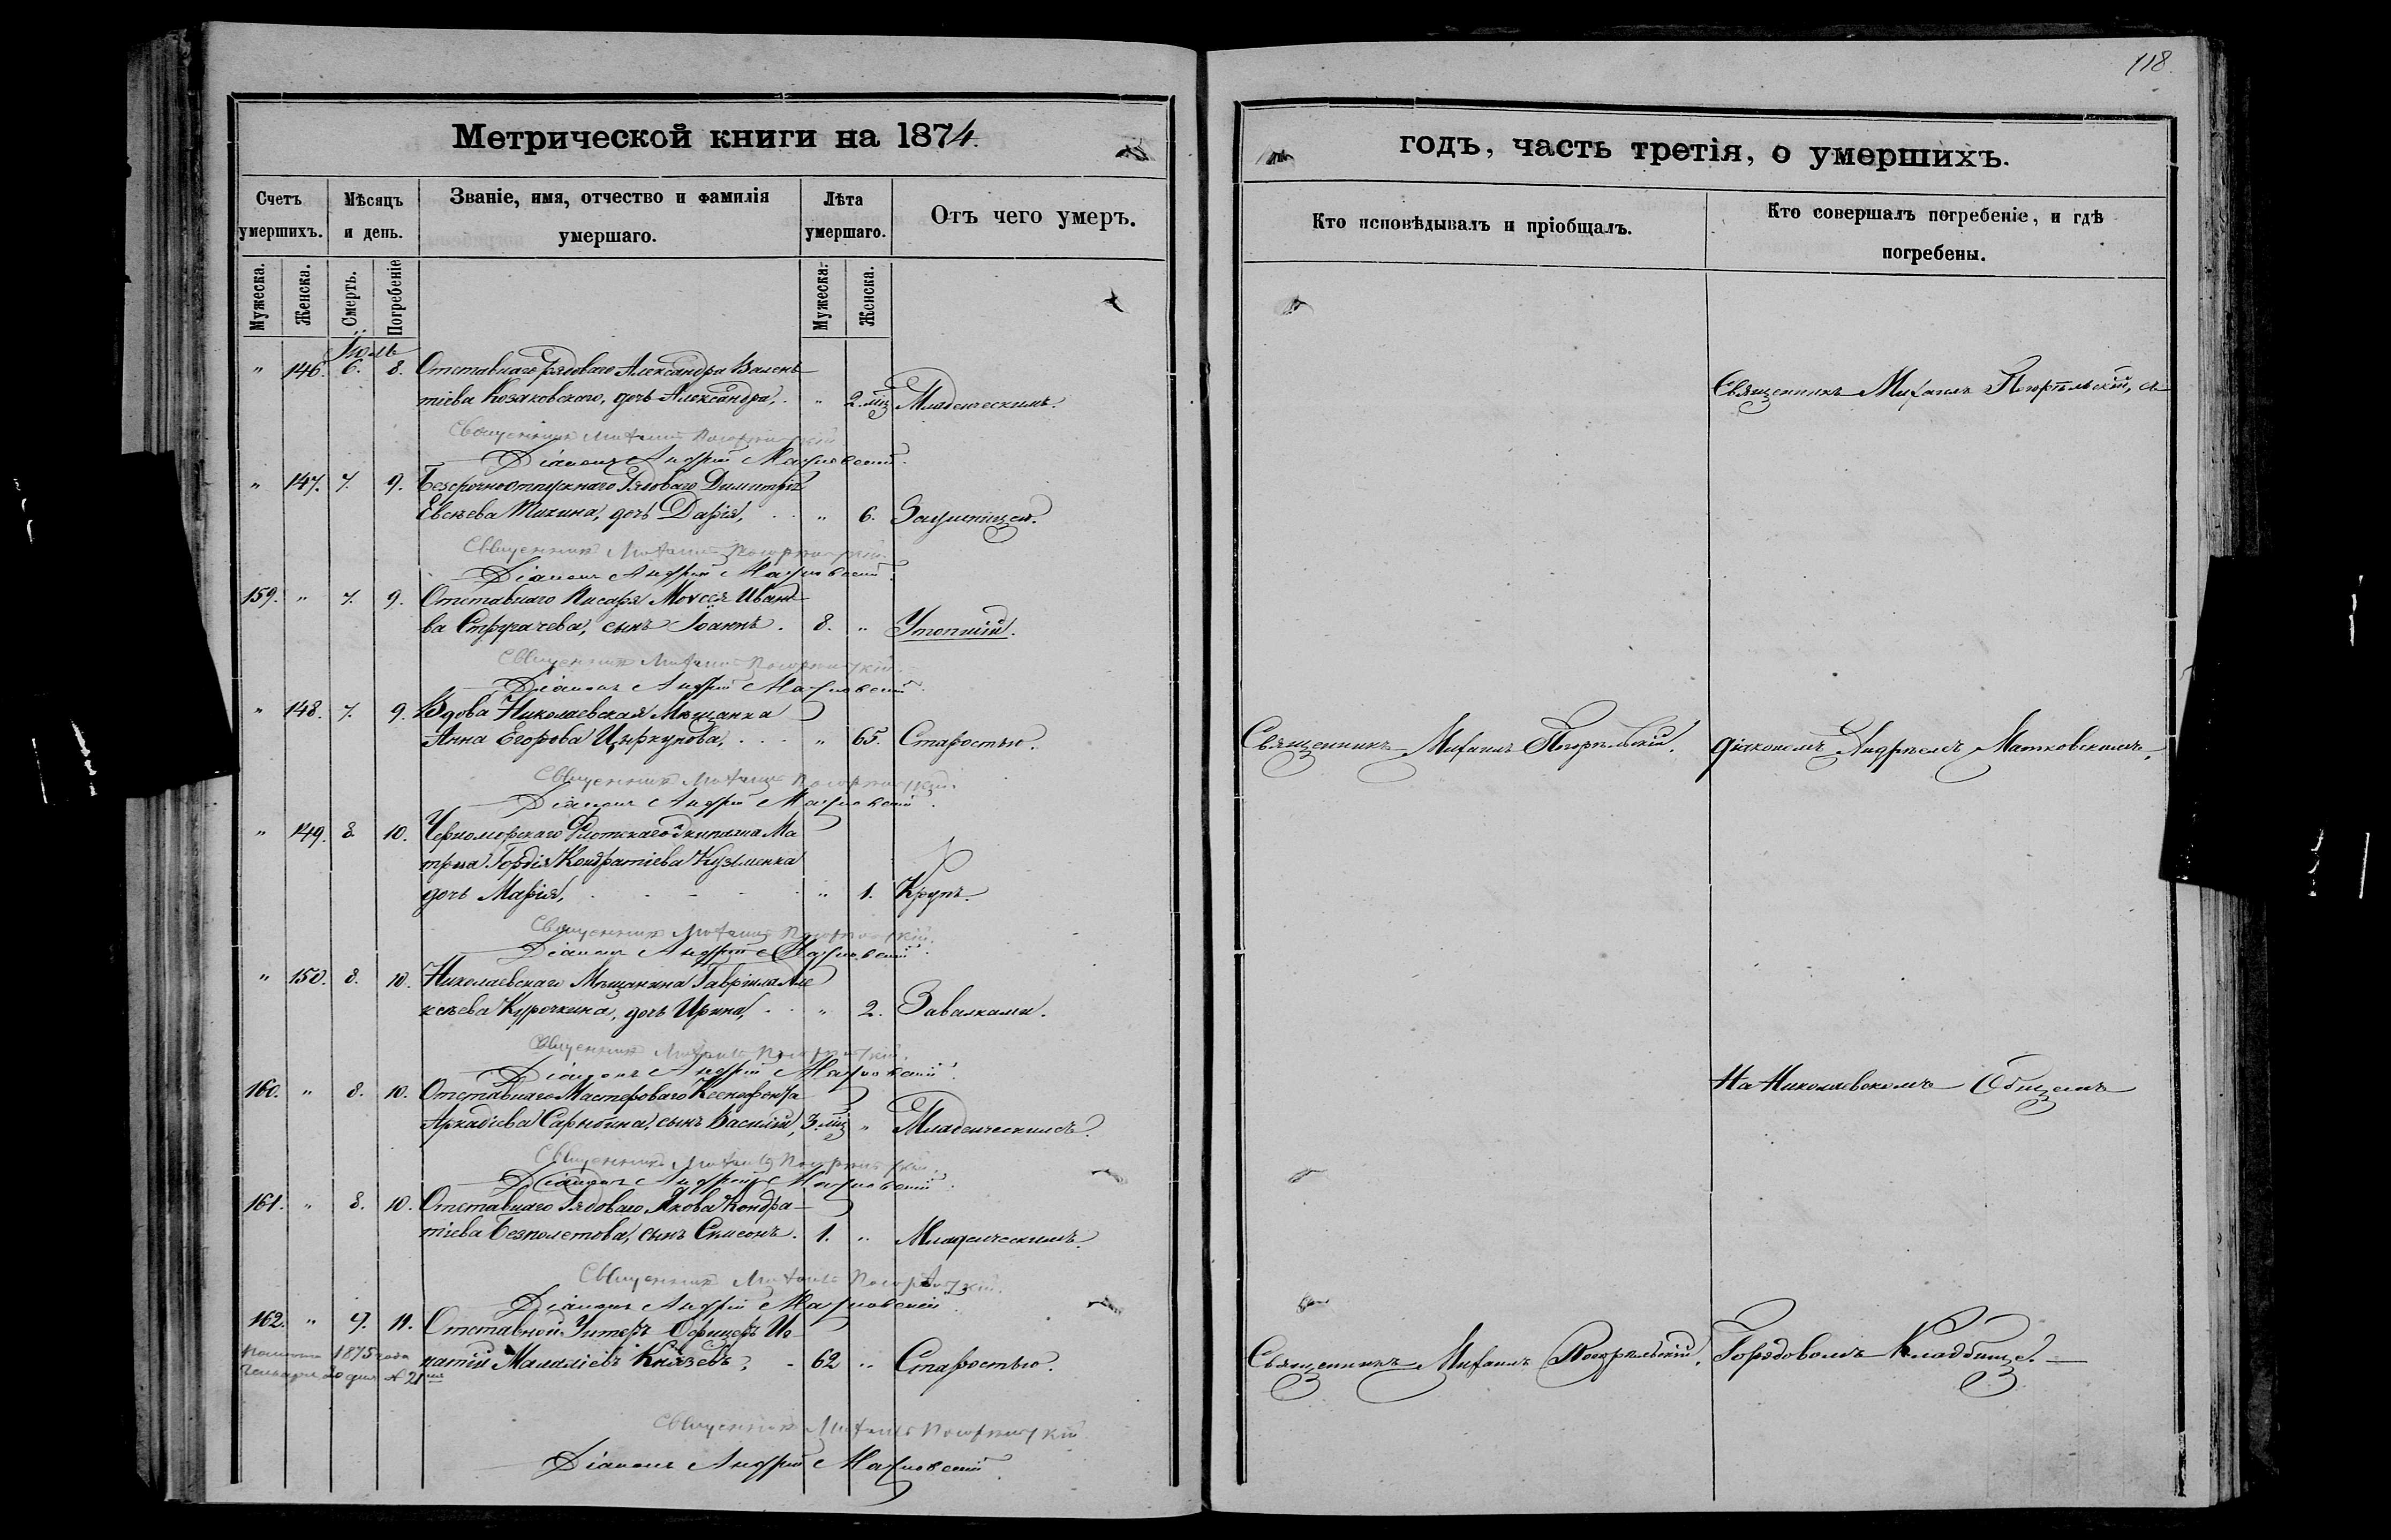 118.
Метрической книги на 1874.
годъ, часть третія, о умершихъ.
Счетъ умершихъ.
Мѣсяцъ и день.
Званіе, имя, отчество и фамилія умершаго.
Лѣта умершаго.
Отъ чего умеръ.
Кто исповѣдывалъ и пріобщалъ.
Кто совершалъ погребеніе, и гдѣ погребены.
Мужеска.
Женска.
Смерть.
Погребеніе
Мужеска.
Женска.
Іюль
" 146. 6. 8. Отставнаго рядоваго Александра Вален
тіева Козаковскаго, дочь Александра, " 2. мц Младенческимъ.
Священникъ Михаилъ Погорѣльскій, съ
Священникъ Михаилъ Погорѣльскій
Діаконъ Андрей Матковскій.
" 147. 7. 9. Безсрочноотпускнаго Рядоваго Димитрія
Евсѣева дочь Дарія, " 6.
Священникъ Михаилъ Погорѣльскій
Діаконъ Андрей Матковскій.
159. " 7. 9. Отставнаго Писаря Мочсея Ивано
ва сынъ Іоаннъ. 8. " Утопшій.
Священникъ Михаилъ Погорѣльскій.
Діаконъ Андрей Матковскій.
" 148. 7. 9. Вдова Николаевская Мѣщанка
Анна Егорова Цыркунова, " 65. Старостью.
Священникъ Михаилъ Погорѣльскій.
діакономъ Андреемъ Матковскимъ,
Священникъ Михаилъ Погорѣльскій
Діаконъ Андрей Матковскій.
" 149. 8. 10. Черноморскаго Флотскаго Экипажа Ма
троса Гордія Кондратіева Кузменка
дочь Марія, " 1. Крупъ.
Священникъ Михаилъ Погорѣльскій.
Діаконъ Андрей Матковскій.
" 150. 8. 10. Николаевскаго Мѣщанина Гавріила Але
ксѣева Курочкина, дочь Ирина, " 2. Завалками.
Священникъ Михаилъ Погорѣльскій.
Діаконъ Андрей Матковскій.
160. " 8. 10. Отставнаго Мастероваго Ксенофонта
Аркадіева Сарыбина, сынъ Василій, 3. мц " Младенческимъ.
На Николаевскомъ Общемъ
Священникъ Михаилъ Погорѣльскій.
Діаконъ Андрей Матковскій.
161. " 8. 10. Отставнаго Рядоваго Якова Кондра-
тіева Безполетова, сынъ Симеонъ. 1. " Младенческимъ.
Священникъ Михаилъ Погорѣльскій.
Діаконъ Андрей Матковскій.
162. " 9. 11. Отставной Унтеръ Офицеръ Иг
натій Малахіевъ Князевъ, 62 " Старостью.
Священникъ Михаилъ Погорѣльскій.
Городовомъ Кладбище.
1875 года
Генваря 20 дня № 21
Священникъ Михаилъ Погорѣльскій
Діаконъ Андрей Матковскій.